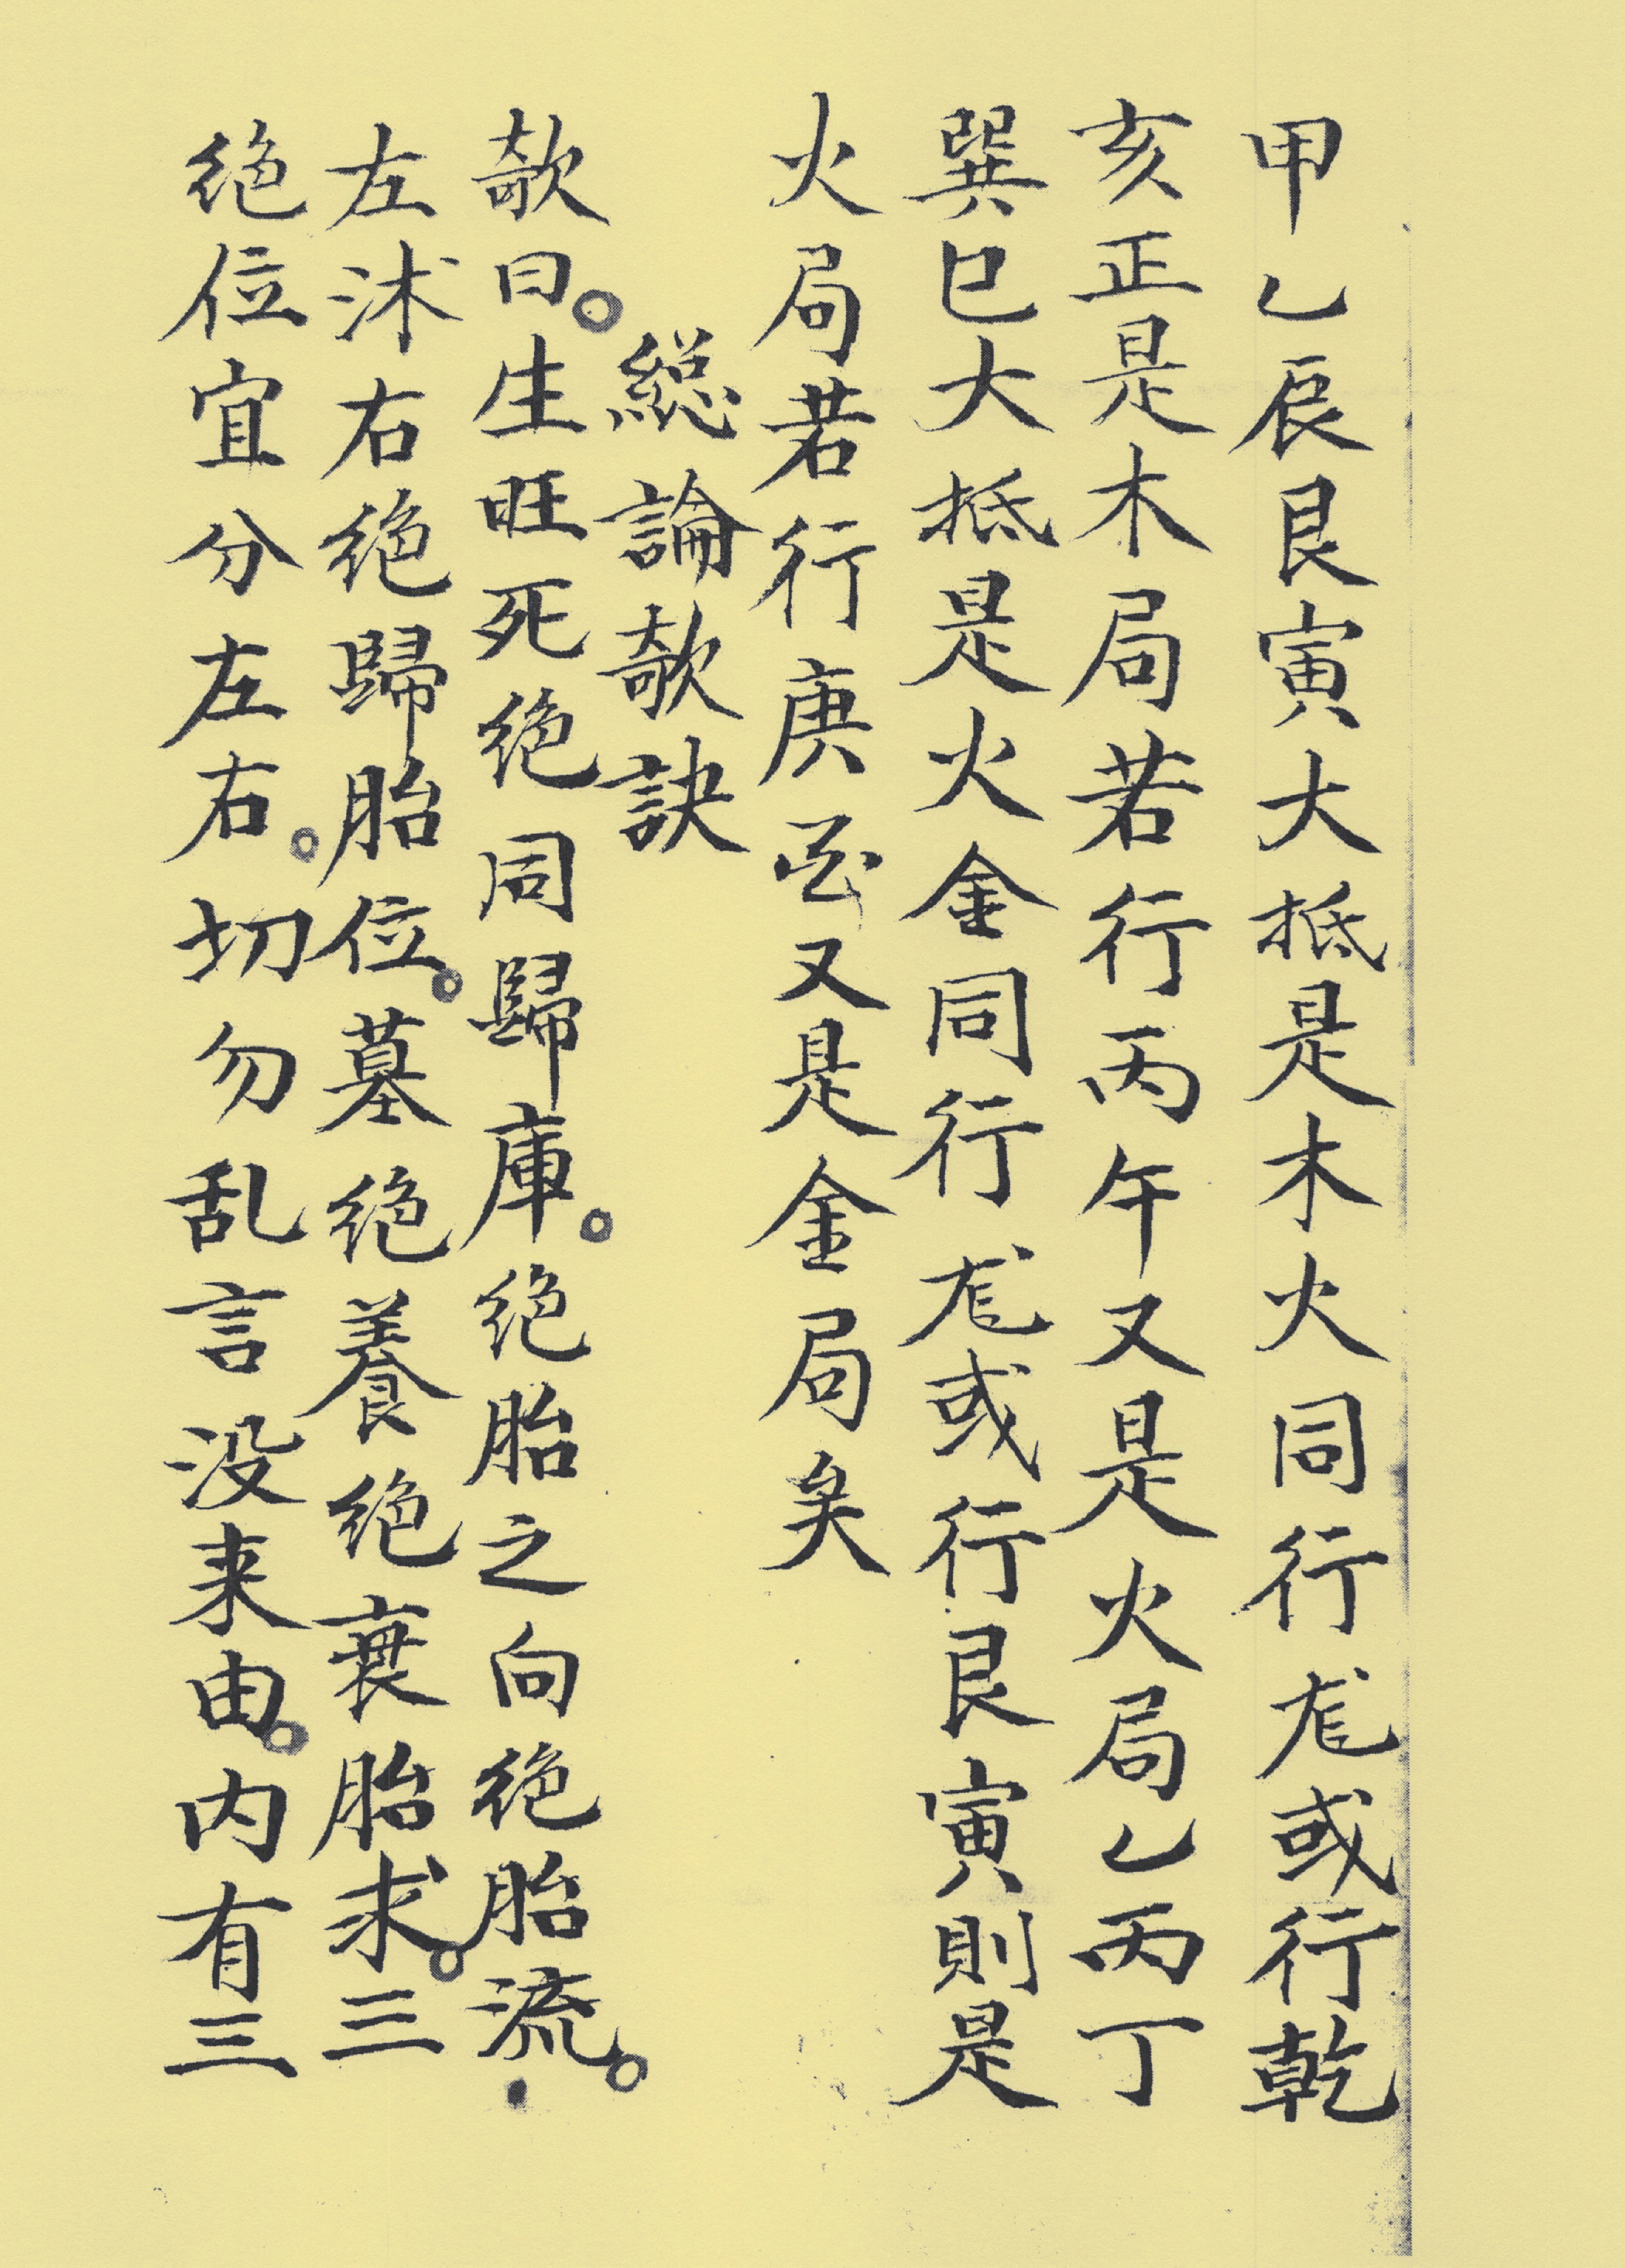 甲乙辰艮寅大抵是木火同行尨或行乾
亥正是木局若行丙午又是火局乙丙丁
巽巳大抵是火金同行尨或行艮寅則是
火局若行庚酉又是金局矣
総論歌訣
歌曰。生旺死绝同歸庫。绝胎之向绝胎流。
左沭右绝歸胎位。墓绝養绝衰胎求。三
绝位宜分左右。切勿乱言没来由。内有三